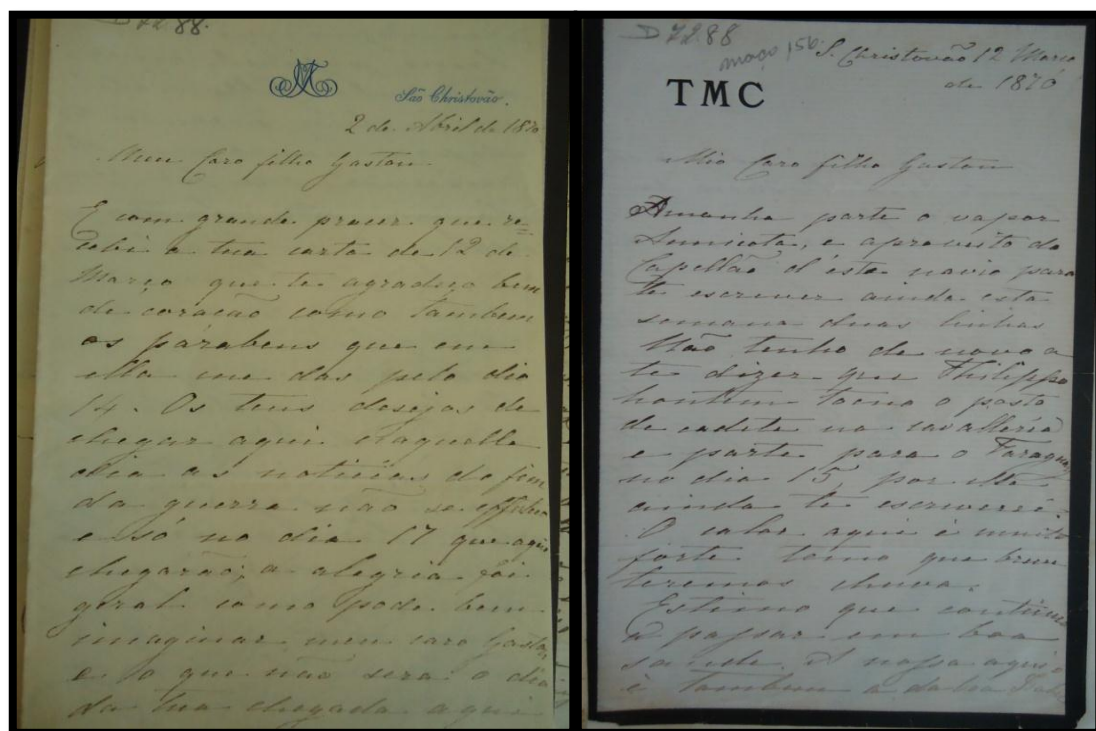 D 7288.
São Christovão.
2 de Abril de 1870
Meu Caro filho Gaston
É com grande prazer que re=
cebi a tua carta de 12 de
Março que te agradeço bem
de coração como tambem
os párabens que em
ella me das pelo dia
14. Os teus desejos de
chegar aqui n'aquelle
dia as noticias do fim
da guerra não se
e só no dia 17 que aqui
chegarão; a alegria foi
geral como pode bem
imaginar meu caro Gaston
e o que não sera o dia
da tua chegada aqui
D 7288
maço 156
S. Christovão 12 Março
de 1870
TMC
Mio Caro filho Gaston
Amanha parte o vapor
e aproveito do
Capellão d'este navio para
te escrever ainda esta
semana duas linhas
Não tenho de novo a
te dizer que Philippe
hontem tomo o posto
de cadete na cavalleria
e parte para o Paraguay
no dia 15, por elle
ainda te escreveré.
O calor aqui é muito
forte temo que breve
teremos chuva.
Estimo que continue
a passar em boa
saude. A nossa aqui
é tambem a da